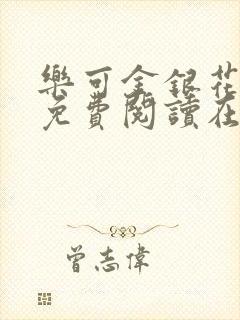 樂可金銀花
免費閱讀在
曾志偉